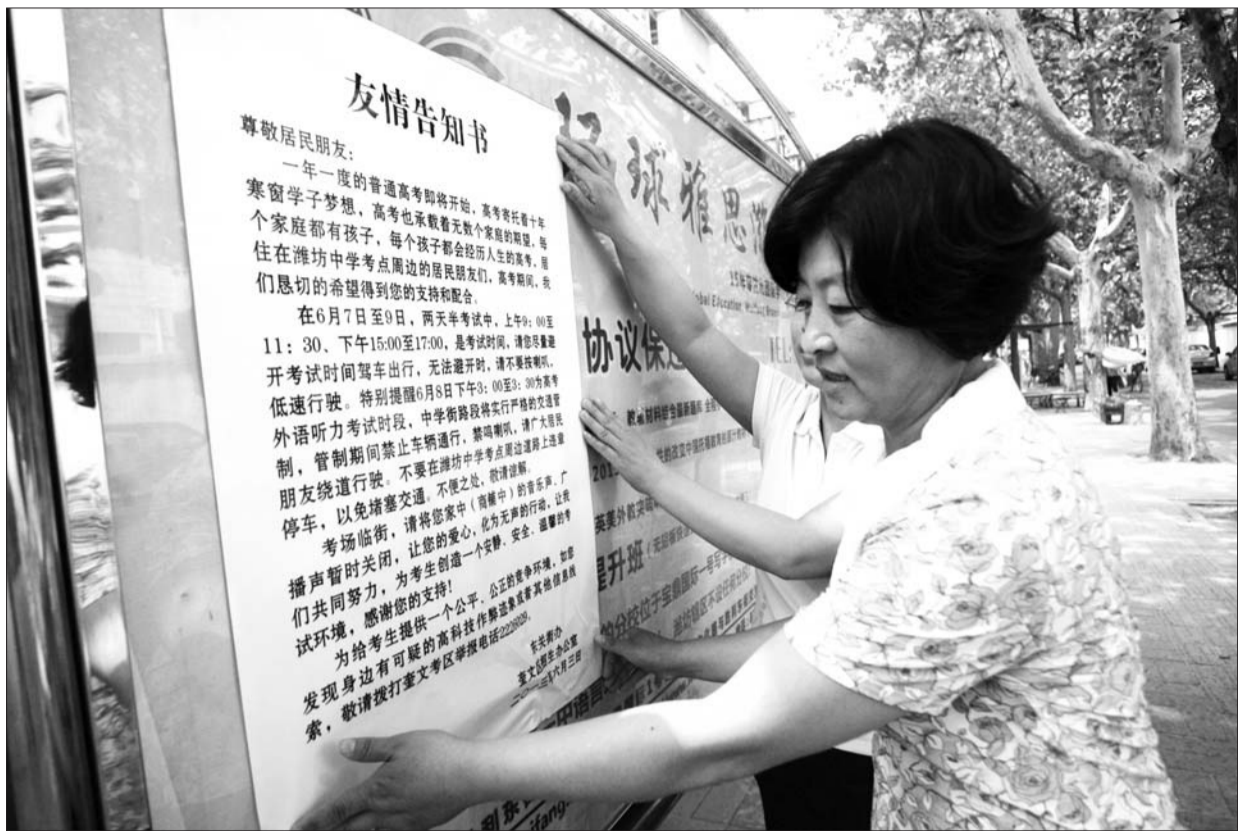 友情告知书
尊敬居民朋友：
一年一度的普通高考即将开始，高考寄托着十年
寒窗学子梦想，高考也承载着无数个家庭的期望，每
个家庭都有孩子，每个孩子都会经历人生的高考，居
住在潍坊中学考点周边的居民朋友们，高考期间，我
们恳切的希望得到您的支持和配合。
在6月7日至9日，两天半考试中，上午9：00至
11：30、下午15:00至17:00，是考试时间，请您尽量避
开考试时间驾车出行，无法避开时，请不要按喇叭，
低速行驶。特别提醒6月8日下午3：00至3：30为高考
外语听力考试时段，中学街路段将实行严格的交通管
制，管制期间禁止车辆通行，禁鸣喇叭，请广大居民
朋友绕道行驶。不要在潍坊中学考点周边道路上违章
停车，以免堵塞交通。不便之处，敬请谅解。
考场临街，请将您家中（商铺中）的音乐声、广
播声暂时关闭，让您的爱心，化为无声的行动，让我
们共同努力，为考生创造一个安静、安全、温馨的考
试环境，感谢您的支持！
为给考生提供一个公平、公正的竞争环境，如您
发现身边有可疑的高科技作弊迹象或者其他信息线
索，敬请拨打奎文考区举报电话
东关街办
奎文区招生办公室
六月三日
球雅思
协议保
英美外教
提升班
分校位于